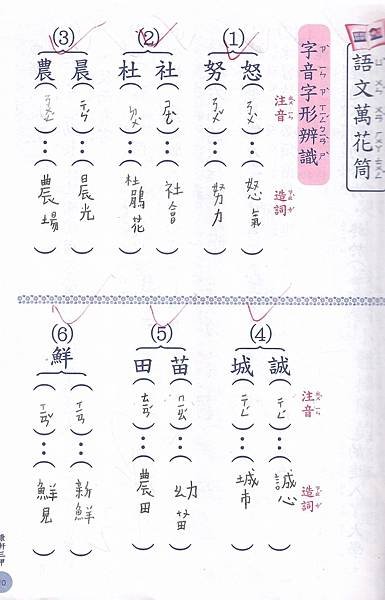 語文萬花筒
字音字形辨識
注音 造詞
(1)
怒(ㄋㄨˋ)：(怒氣)
努(ㄋㄨˇ)：(努力)
(2)
社(ㄕㄜˋ)：(社會)
杜(ㄉㄨˋ)：(杜鵑花)
(3)
晨(ㄔㄣˊ)：(晨光)
農(ㄋㄨㄥˊ)：(農場)
注音 造詞
(4)
誠(ㄔㄥˊ)：(誠心)
城(ㄔㄥˊ)：(城市)
(5)
苗(ㄇㄧㄠˊ)：(幼苗)
田(ㄊㄧㄢˊ)：(農田)
(6)
鮮
(ㄒㄧㄢ)：(新鮮)
(ㄒㄧㄢˇ)：(鮮見)
康軒三甲